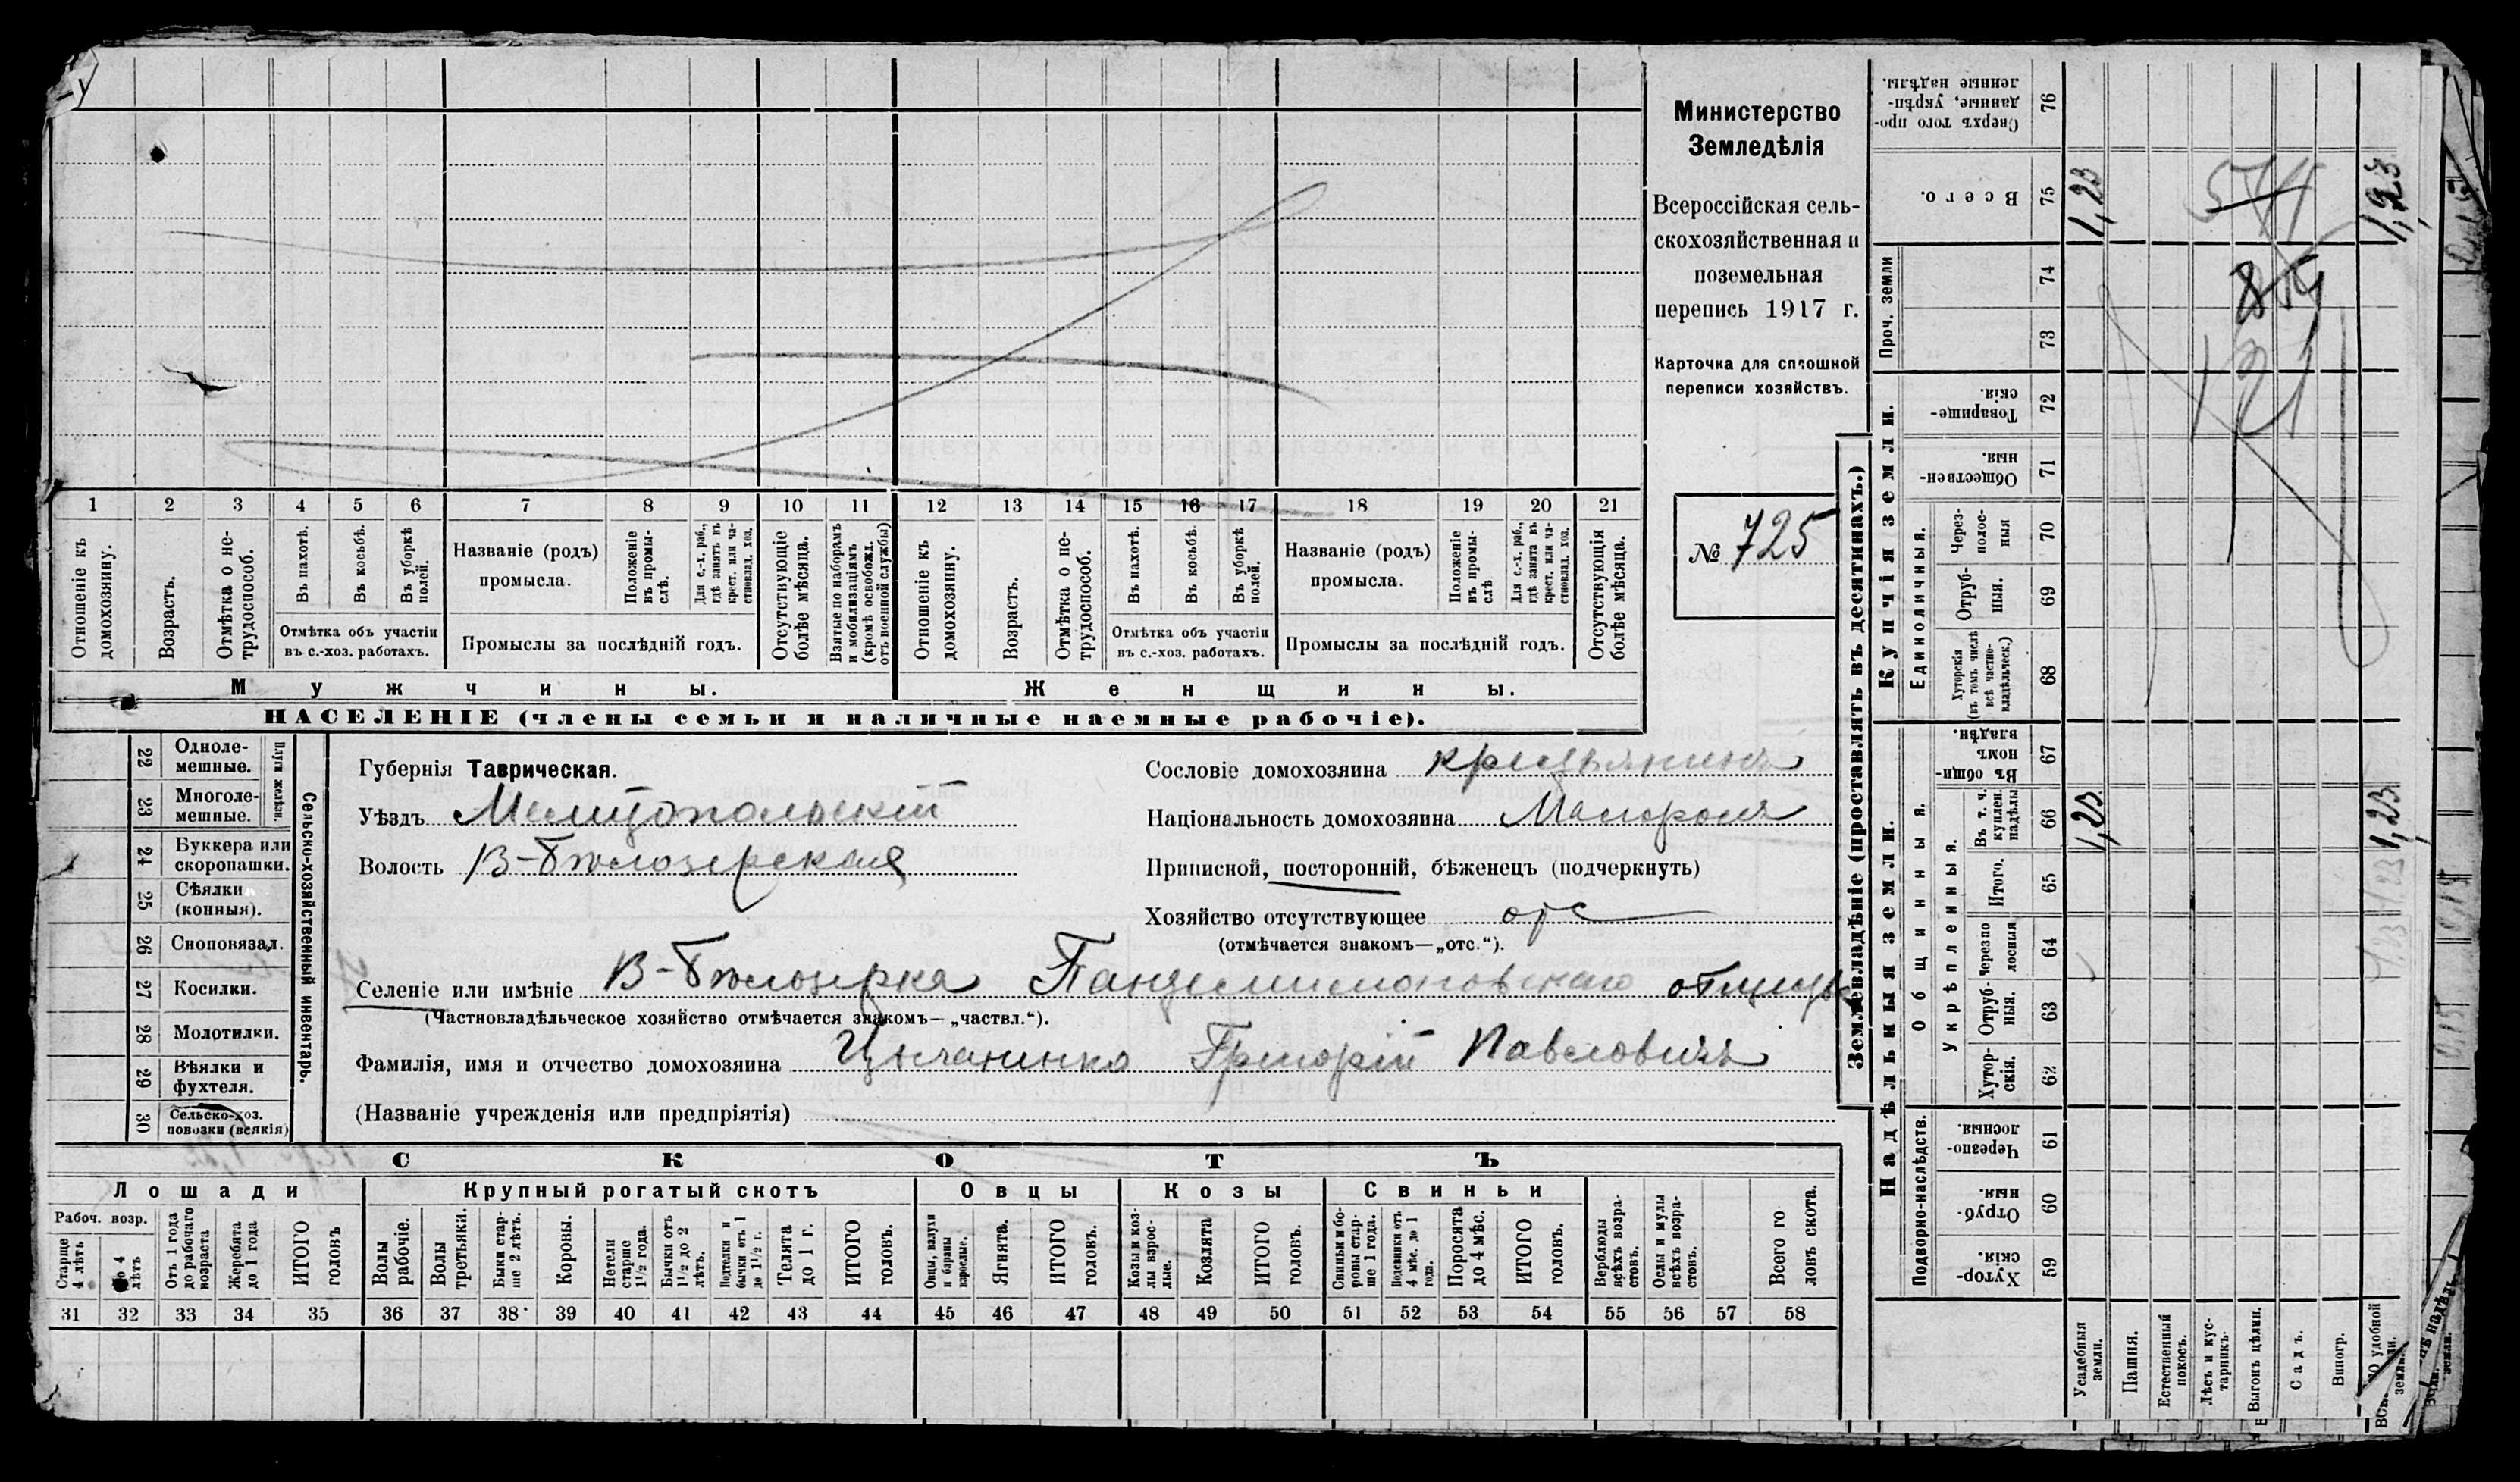 Министерство
Земледѣлія
Всероссійская сель-
скохозяйственная и
поземельная
перепись 1917 г.
Карточка для сплошной
переписи хозяйствъ.
№ 725
1 2 3 4 5 6 7 8 9 10 11 12 13 14 15 16 17 18 19 20 21
Отношеніе къ домохозяину.
Возрастъ.
Отмѣтка о не-трудоспособ.
Въ пахотѣ.
Въ косьбѣ.
Въ уборкѣ полей.
Отмѣтка объ участіи
въ с.-хоз. работахъ.
Названіе (родъ)
промысла.
Положеніе въ промы-слѣ.
Для с.-х. раб., гдѣ занятъ въ крест. или ча-стновлад. хоз.
Промыслы за послѣдній годъ.
Отсутствующіе болѣе мѣсяца.
Взятые по наборамъ и мобилизаціямъ (кромѣ освобожд. отъ военной службы)
Отношеніе къ домохозяину.
Возрастъ.
Отмѣтка о не-трудоспособ.
Въ пахотѣ.
Въ косьбѣ.
Въ уборкѣ полей.
Отмѣтка объ участіи
въ с.-хоз. работахъ.
Названіе (родъ)
промысла.
Положеніе въ промы-слѣ
Для с.-х. раб., гдѣ занятъ въ крест. или ча-стновлад. хоз.
Промыслы за послѣдній годъ.
Отсутствующія болѣе мѣсяца.
Мужчины.
Женщины.
НАСЕЛЕНІЕ (члены семьи и наличные наемные рабочіе).
Сельско-хозяйственный инвентарь.
Плуги желѣзн.
22 Одноле-мешные.
23 Многоле-мешные.
24 Буккера или скоропашки.
25 Сѣялки (конныя).
26 Сноповязал.
27 Косилки.
28 Молотилки.
29 Вѣялки и фухтеля.
30 Сельско-хоз. повозки (всякія)
Губернія Таврическая.
Уѣздъ Мелитопольскій
Волость В-Бѣлозерская
Сословіе домохозяина крестьянинъ
Національность домохозяина Малороссъ
Приписной, посторонній, бѣженецъ (подчеркнуть)
Хозяйство отсутствующее отс
(отмѣчается знакомъ—„отс.“).
Селеніе или имѣніе В-Бѣлозерка Пантелимоновскаго
(Частновладѣльческое хозяйство отмѣчается знакомъ— „частвл.“).
Фамилія, имя и отчество домохозяина Цыганенко Григорій Павловичъ
(Названіе учрежденія или предпріятія)
СКОТЪ
Лошади
Крупный рогатый скотъ
Овцы
Козы
Свиньи
Рабоч. возр.
Старще 4 лѣтъ
До 4 лѣтъ
Отъ 1 года до рабочаго возраста
Жеребята до 1 года
ИТОГО головъ
Волы рабочіе.
Волы третьяки.
Быки стар-ше 2 лѣтъ.
Коровы.
Нетели старше 1½ года.
Бычки отъ 1½ до 2 лѣтъ.
Подтелки и бычки отъ 1 до 1½ г.
Телята до 1 г.
ИТОГО головъ.
Овцы, валухи и бараны взрослые.
Ягнята.
ИТОГО головъ.
Козы и коз-лы взрос-лые.
Козлята
ИТОГО головъ.
Свиньи и бо-ровы стар-ше 1 года.
Подсвинки отъ 4 мѣс. до 1 года.
Поросята до 4 мѣс.
ИТОГО головъ.
Верблюды всѣхъ возра-стовъ.
Ослы и мулы всѣхъ возра-стовъ.
Всего го-ловъ скота.
31 32 33 34 35 36 37 38 39 40 41 42 43 44 45 46 47 48 49 50 51 52 53 54 55 56 57 58
Землевладѣніе (проставлять въ десятинахъ.)
Купчія земли.
Надѣльныя земли.
Сверхъ того про-данные, укрѣп-ленные надѣлы. 76
Всего. 75 1,23 1,23
Проч. земли
74
73
Товарище-скія. 72
Обществен-ныя. 71
Единоличныя.
Через-полос-ныя 70
Отруб-ныя. 69
Хуторскія (въ томъ числѣ всѣ частно-владѣльческ.) 68
Общинныя.
Въ общи-номъ владѣн. 67
Укрѣпленныя.
Въ т. ч. куплен. надѣлы 66 1,23 1,23
Итого. 65
Черезпо-лосныя 64
Отруб-ныя. 63
Хутор-скія. 62
Подворно-наслѣдств.
Черезпо-лосныя. 61
Отруб-ныя. 60
Хутор-скія. 59
Усадебныя земли.
Пашня.
Естественный покосъ.
Лѣсъ и кус-тарникъ.
Выгонъ цѣлин.
Садъ.
Виногр.
удобной
571
121